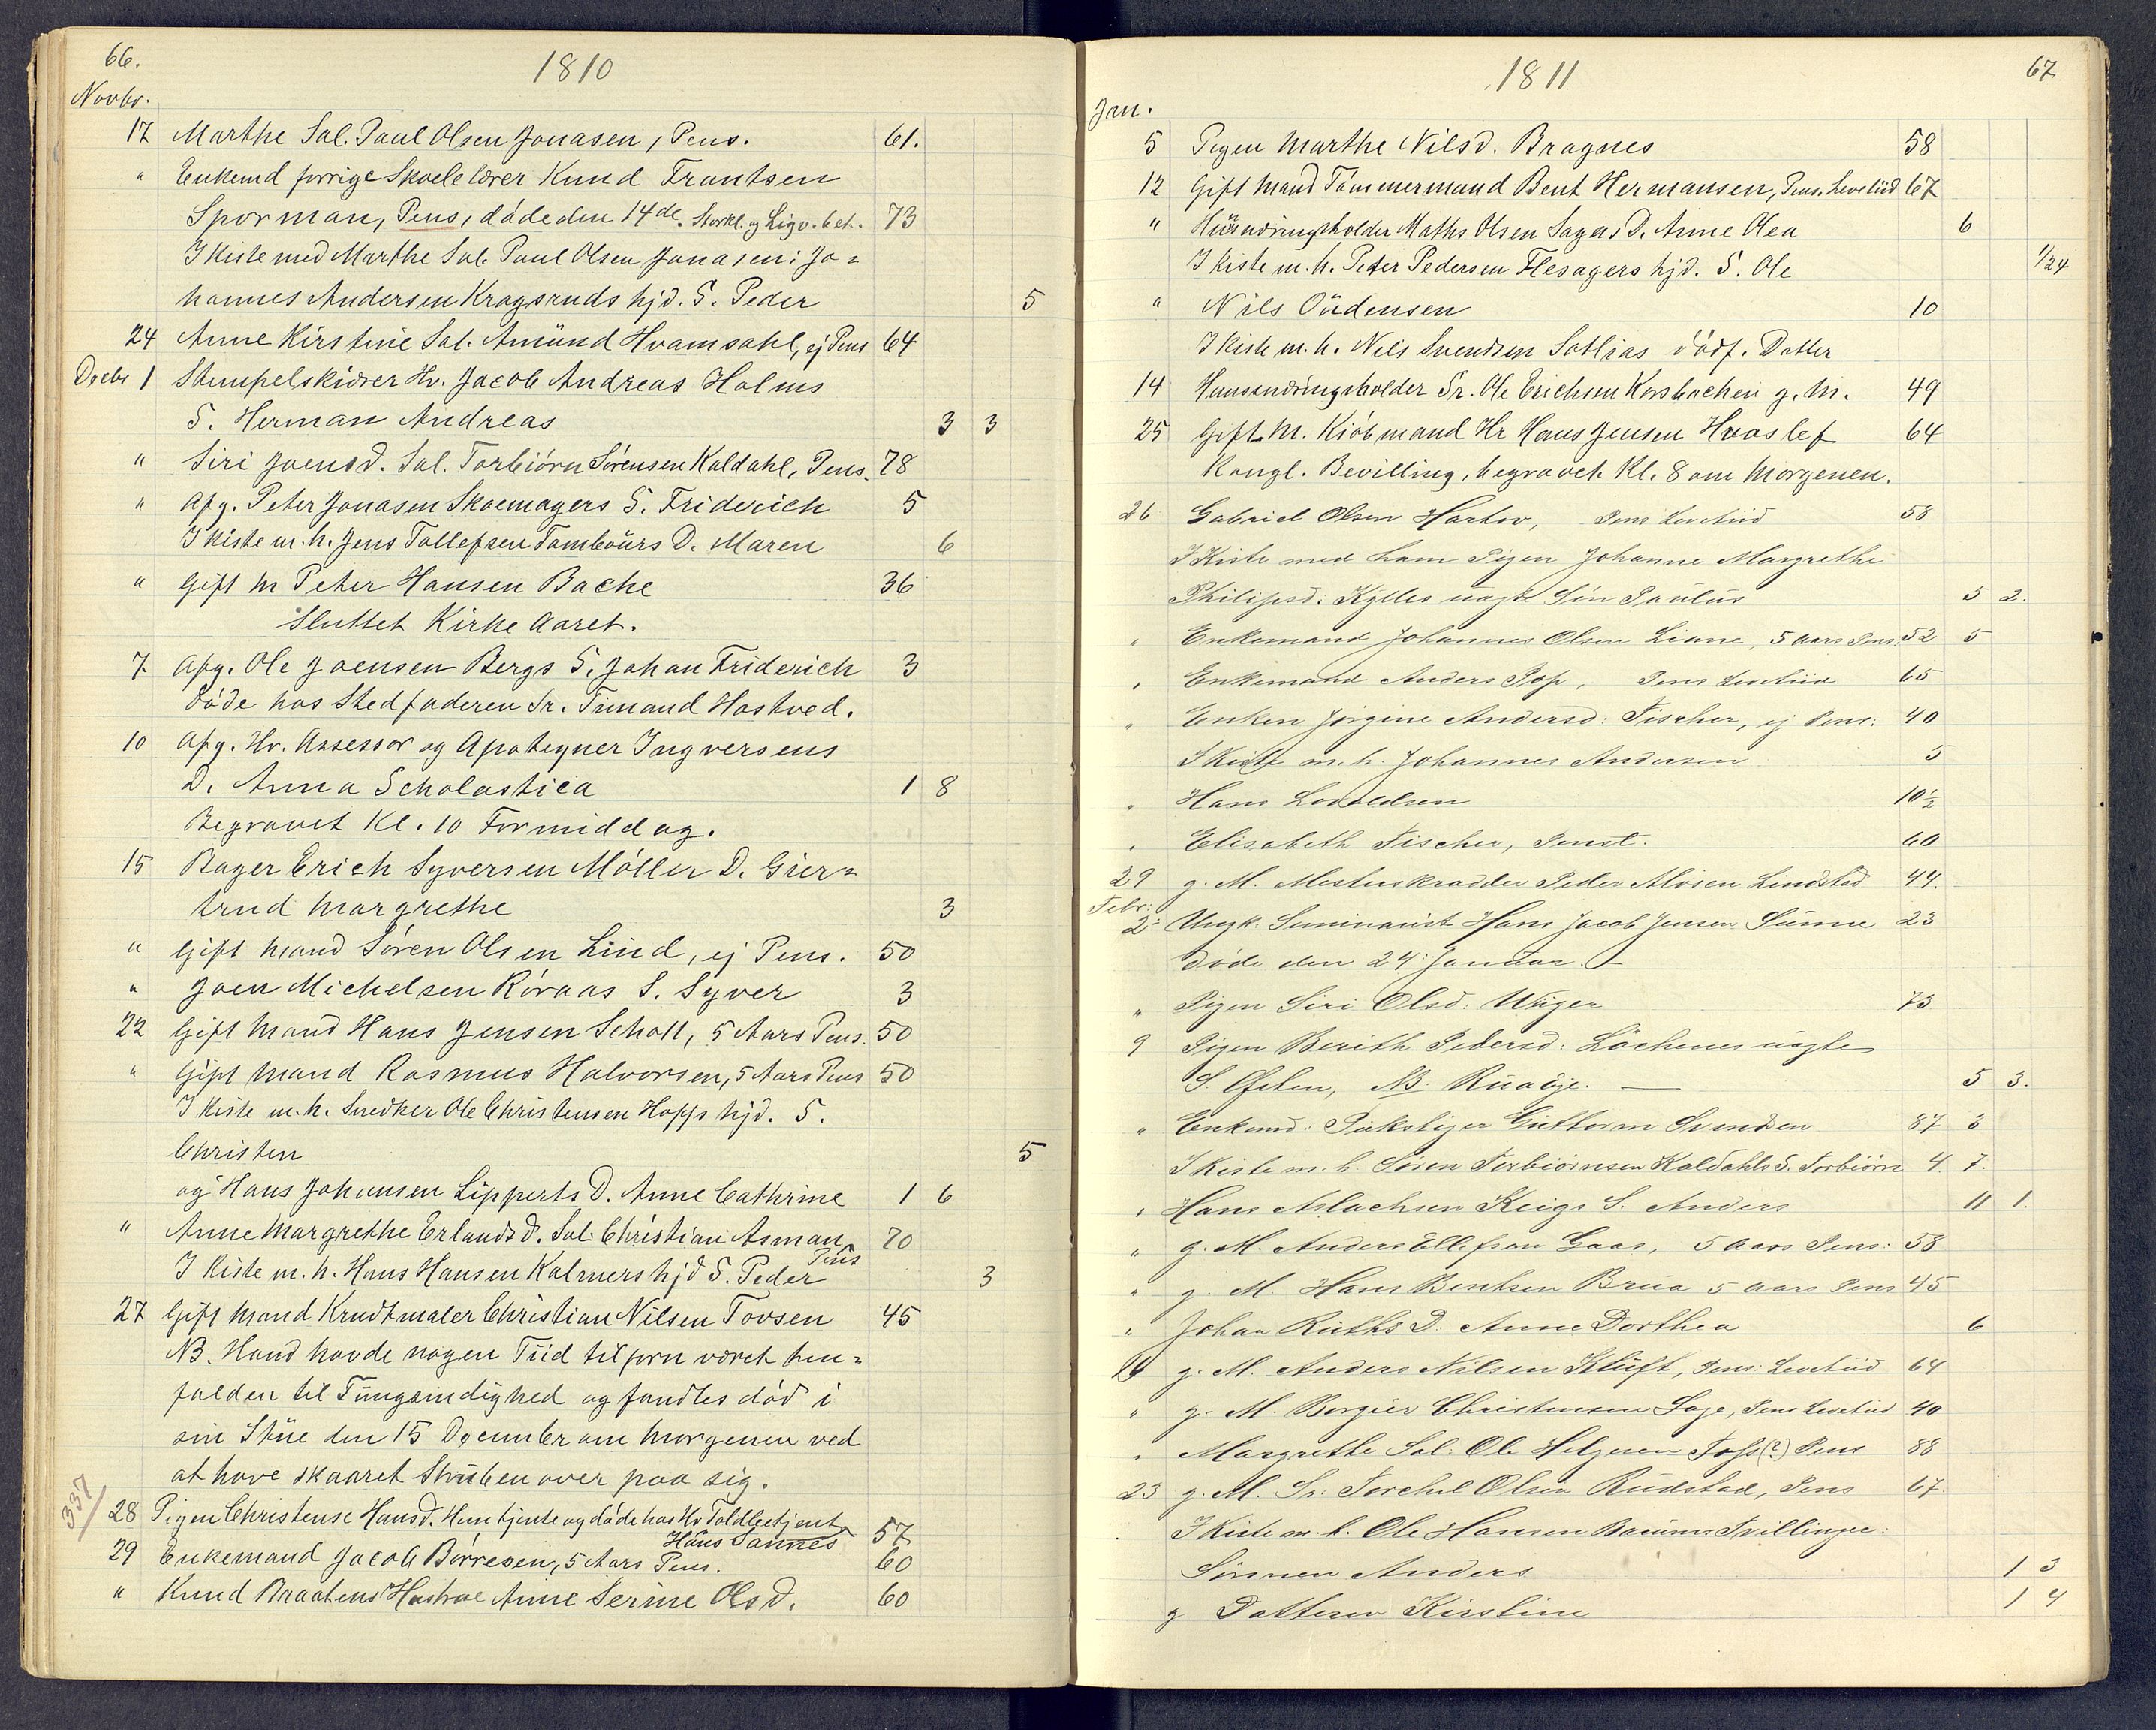 66.
1810
Novbr.
17 Marthe Sal. Paul Olsen Jonasen, Pens. 61.
" Enkemd forrige Skoelelærer Knud Frantsen
Sporman, Pens, döde den 14de. Storkl. og Ligv. bet. 73
I Kiste med Marthe Sal. Paul Olsen Jonasen: Jo=
hannes Andersen Kragsruds hjd. S. Peder 5
24 Anne Kirstine Sal. Amünd Hvamsahl, ej Pens 64
Decbr 1 Stempelskiærer Hr. Jacob Andreas Holms
S. Herman Andreas 3 3
" Siri Joensd. Sal. Torbiörn Sörensen Kaldahl, Pens. 78
" Afg. Peter Jonasen Skoemagers S. Friderich 5
I Kiste m. h. Jens Tollefsen Tamboürs D. Maren 6
" Gift M Peter Hansen Bache 36
Sluttet Kirke Aaret.
7 Afg. Ole Joensen Bergs S. Johan Friderich 3
döde hos Stedfaderen Sr. Timand Hostved.
10 Afg. Hr. Assessor og Apoteqner Ingversens
D. Anna Scholastica 1 8
Begravet Kl. 10 Formiddag.
15 Bager Erich Syversen Möller D. Gier=
trud Margrethe 3
" Gift Mand Sören Olsen Lind, ej Pens. 50
" Joen Michelsen Röraas S. Syver 3
22 Gift Mand Hans Jensen Schott, 5 Aars Pens. 50
" Gift Mand Rasmus Halvorsen, 5 Aars Pens 50
I Kiste m. h. Snedker Ole Christensen Hopps hjd. S.
Christen 5
og Hans Johansen Lipperts D. Anne Cathrine 1 6
" Anne Margrethe Erlandsd. Sal. Christian Asman 70
Pens
I Kiste m. h. Hans Hansen Kalmers hjd S. Peder 3
27 Gift Mand Krudtmaler Christian Nilsen Tovsen 45
NB. Hand havde nogen Tiid tilforn væreh hen=
falden til Tüngsindighed og fandtes död i
sin Stüe den 15 December om Morgenen ved
at have skaaret Strüben over paa sig.
337/
28 Pigen Christense Hansd. Hun tjente og döde hos Hr Toldbetjent
Hans Sannes 57
29 Enkemand Jacob Börresen, 5 Aars Pens. 60
" Knud Braatens Hustroe Anne Serine Olsd. 60
67
1811
Jan.
5 Pigen Marthe Nilsd. Bragnes 58
12 Gift Mand Tömmermand Bent Hermansen, Pens. Levetiid 67
" Hüüsndringsholder Maths Olsen Sagas D. Anne Olea 6
I Kiste m. h. Peder Pedersen Flesagers hjd. S. Ole 1/24
" Nils Oüdensen 10
I Kiste m. h. Nils Svendsen Satlias dödf. Datter
14 Huusndringsholder Sr. Ole Erichsen Korsbachen g. M. 49
25 Gift M. Kiöbmand Hr Hans Jensen Hvoslef 64
Kongl. Bevilling, begraveh Kl. 8 om Morgenen.
26 Gabriel Olsen Hartov, Pens Levetiid 58
I Kiste med ham Pigen Johanne Margrethe
Philipsd. Kylles üægte Sön Paulüs 5 2.
" Enkemand Johannes Olsen Liane, 5 Aars Pens. 52 5
" Enkemand Anders Pop, Pens Levetiid 65
" Enken Jörgine Andersd: Fischer, ej Pens: 40
I Kiste m. h. Johannes Andersen 5
" Hans Lovoldsen 10½
" Elisabeth Fischer, Penst. 60
29 g. M. Mesterskrædder Peder Alvsen Lindstad 44.
Febr:
2: Ungk: Seminarist Hans Jacob Jensen Sünne 23
döde den 24: Januar.
" Pigen Siri Olsd: Wüger 73
9 Pigen Berith Pedersd: Löchenes üægte
S. Østen, NB. Rüabye. 5 3.
" Enkemd: Pukstiger Güttorm Svendsen 87 3
I Kiste m. h. Sören Torbiörnsen Kaldahls S. Torbiörn 4 7.
" Hans Aslachsen Kleigs S. Anders 11 1.
" g. M. Anders Ellefson Gaas, 5 Aars Pens: 58
" g. M. Hans Bentsen Brüa 5 Aars Pens 45
" Johan Rüths D. Anne Dorthea 6
16 g. M. Anders Nilsen Klüft, Pens: Levetiid 64
" g. M. Borgier Christensen Lage, Pens Levetiid 40
" Margrethe Sal: Ole Helgesen Foss (?) Pens 88
23 g. M. Sr: Torchel Olsen Rüdstad, Pens 67.
I Kiste m. h. Ole Hansen Bærums Tvillinger:
Sönnen Anders 1 3
og Datteren Kirstine 1 4